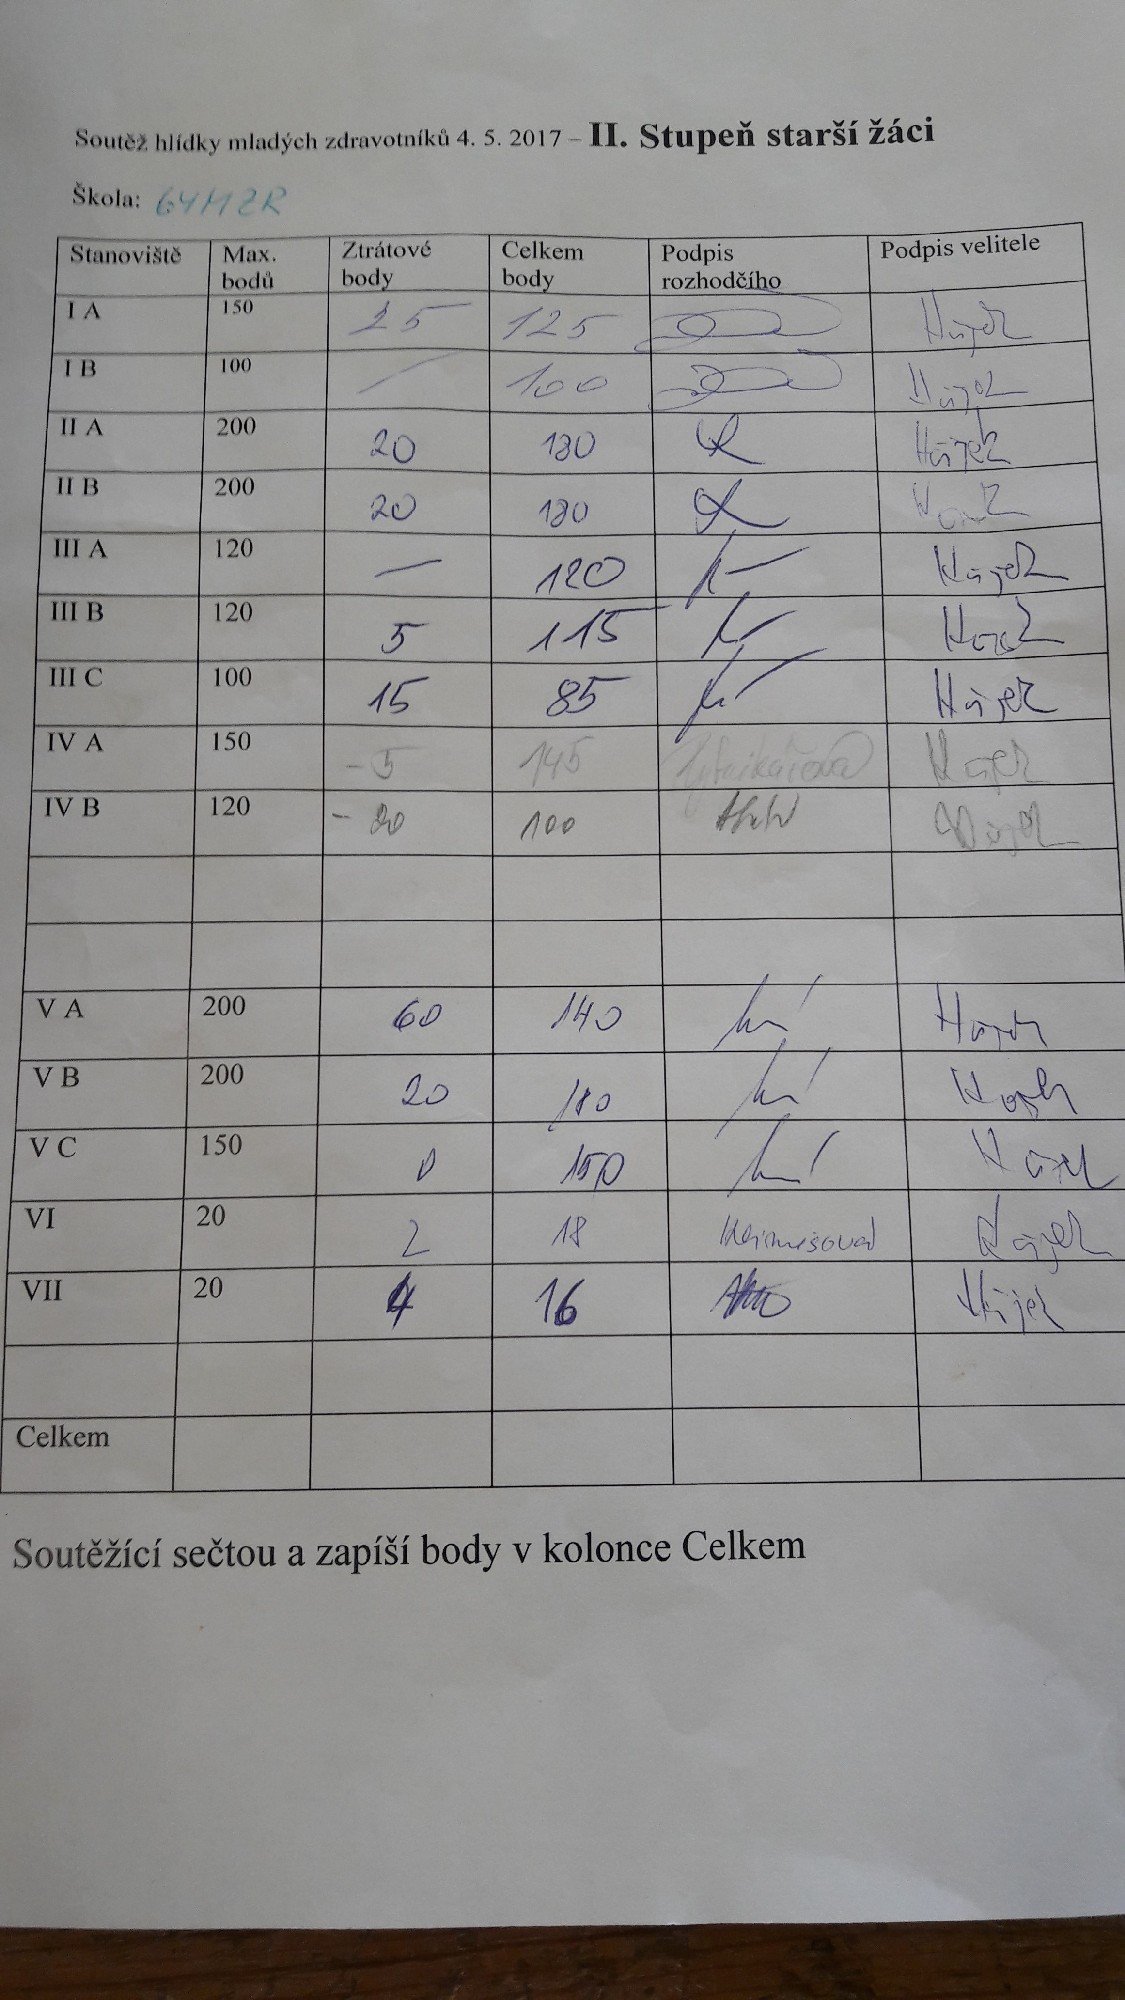 Soutěž hlídky mladých zdravotníků 4. 5. 2017 – II. Stupeň starší žáci
Škola: GYMZR
Stanoviště Max. bodů Ztrátové body Celkem body Podpis rozhodčího Podpis velitele
I A 150 25 125 Hájek
I B 100 – 100 Hájek
II A 200 20 180 Hájek
II B 200 20 180 Hájek
III A 120 – 120 Hájek
III B 120 5 115 Hájek
III C 100 15 85 Hájek
IV A 150 -5 145 Hájek
IV B 120 -20 100 Hájek
V A 200 60 140 Hájek
V B 200 20 180 Hájek
V C 150 0 150 Hájek
VI 20 2 18 Hájek
VII 20 4 16 Hájek
Celkem
Soutěžící sečtou a zapíší body v kolonce Celkem